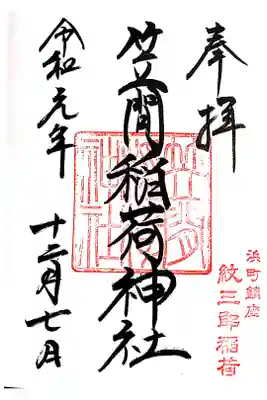 奉拝
浜町鎮座
紋三郎稲荷
笠間稲荷神社
令和元年
十二月七日